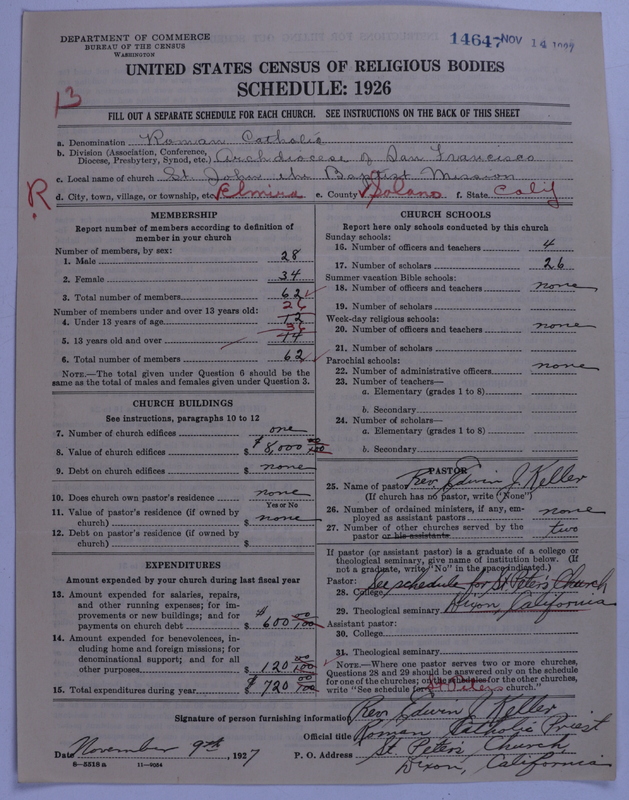 DEPARTMENT OF COMMERCE
BUREAU OF THE CENSUS
WASHINGTON
14647 NOV 14
UNITED STATES CENSUS OF RELIGIOUS BODIES
SCHEDULE: 1926
13
FILL OUT A SEPARATE SCHEDULE FOR EACH CHURCH. SEE INSTRUCTIONS ON THE BACK OF THIS SHEET
a. Denomination Roman Catholic
b. Division (Association, Conference, Diocese, Presbytery, Synod, etc.) Archdiocese of San Francisco
c. Local name of church St John the Baptist Mission
R
d. City, town, village, or township, etc. Elmira e. County Solano f. State Calif
MEMBERSHIP
Report number of members according to definition of
member in your church
Number of members, by sex:
1. Male 28
2. Female 34
3. Total number of members 62
Number of members under and over 13 years old:
26
4. Under 13 years of age 12
36
5. 13 years old and over 44
6. Total number of members 62
NOTE.—The total given under Question 6 should be the
same as the total of males and females given under Question 3.
CHURCH BUILDINGS
See instructions, paragraphs 10 to 12
7. Number of church edifices one
8. Value of church edifices $ $8,000 00/100
9. Debt on church edifices $ none
10. Does church own pastor's residence none
Yes or No
11. Value of pastor's residence (if owned by
church) $ none
12. Debt on pastor's residence (if owned by
church) $
EXPENDITURES
Amount expended by your church during last fiscal year
13. Amount expended for salaries, repairs,
and other running expenses; for im-
provements or new buildings; and for
payments on church debt $ $600 00/100
14. Amount expended for benevolences, in-
cluding home and foreign missions; for
denominational support; and for all
other purposes $ 120 00/100
15. Total expenditures during year $ $720 00/100
CHURCH SCHOOLS
Report here only schools conducted by this church
Sunday schools:
16. Number of officers and teachers 4
17. Number of scholars 26
Summer vacation Bible schools:
18. Number of officers and teachers none
19. Number of scholars
Week-day religious schools:
20. Number of officers and teachers none
21. Number of scholars
Parochial schools:
22. Number of administrative officers none
23. Number of teachers—
a. Elementary (grades 1 to 8)
b. Secondary
24. Number of scholars—
a. Elementary (grades 1 to 8)
b. Secondary
PASTOR
25. Name of pastor Rev. Edwin J. Keller
(If church has no pastor, write "None")
26. Number of ordained ministers, if any, em-
ployed as assistant pastors none
27. Number of other churches served by the
pastor or his assistants two
If pastor (or assistant pastor) is a graduate of a college or
theological seminary, give name of institution below. (If
not a graduate, write "No" in the space indicated.)
Pastor: See schedule for St Peter's Church
28. College
29. Theological seminary Dixon, California
Assistant pastor:
30. College
31. Theological seminary
NOTE.—Where one pastor serves two or more churches,
Questions 28 and 29 should be answered only on the schedule
for one of the churches; on the schedules for the other churches,
write "See schedule for St Peters church."
Signature of person furnishing information Rev. Edwin J. Keller
Official title Roman Catholic Priest
Date November 9th, 1927 P. O. Address St Peters Church,
Dixon, California
8—5518 a 11—9054